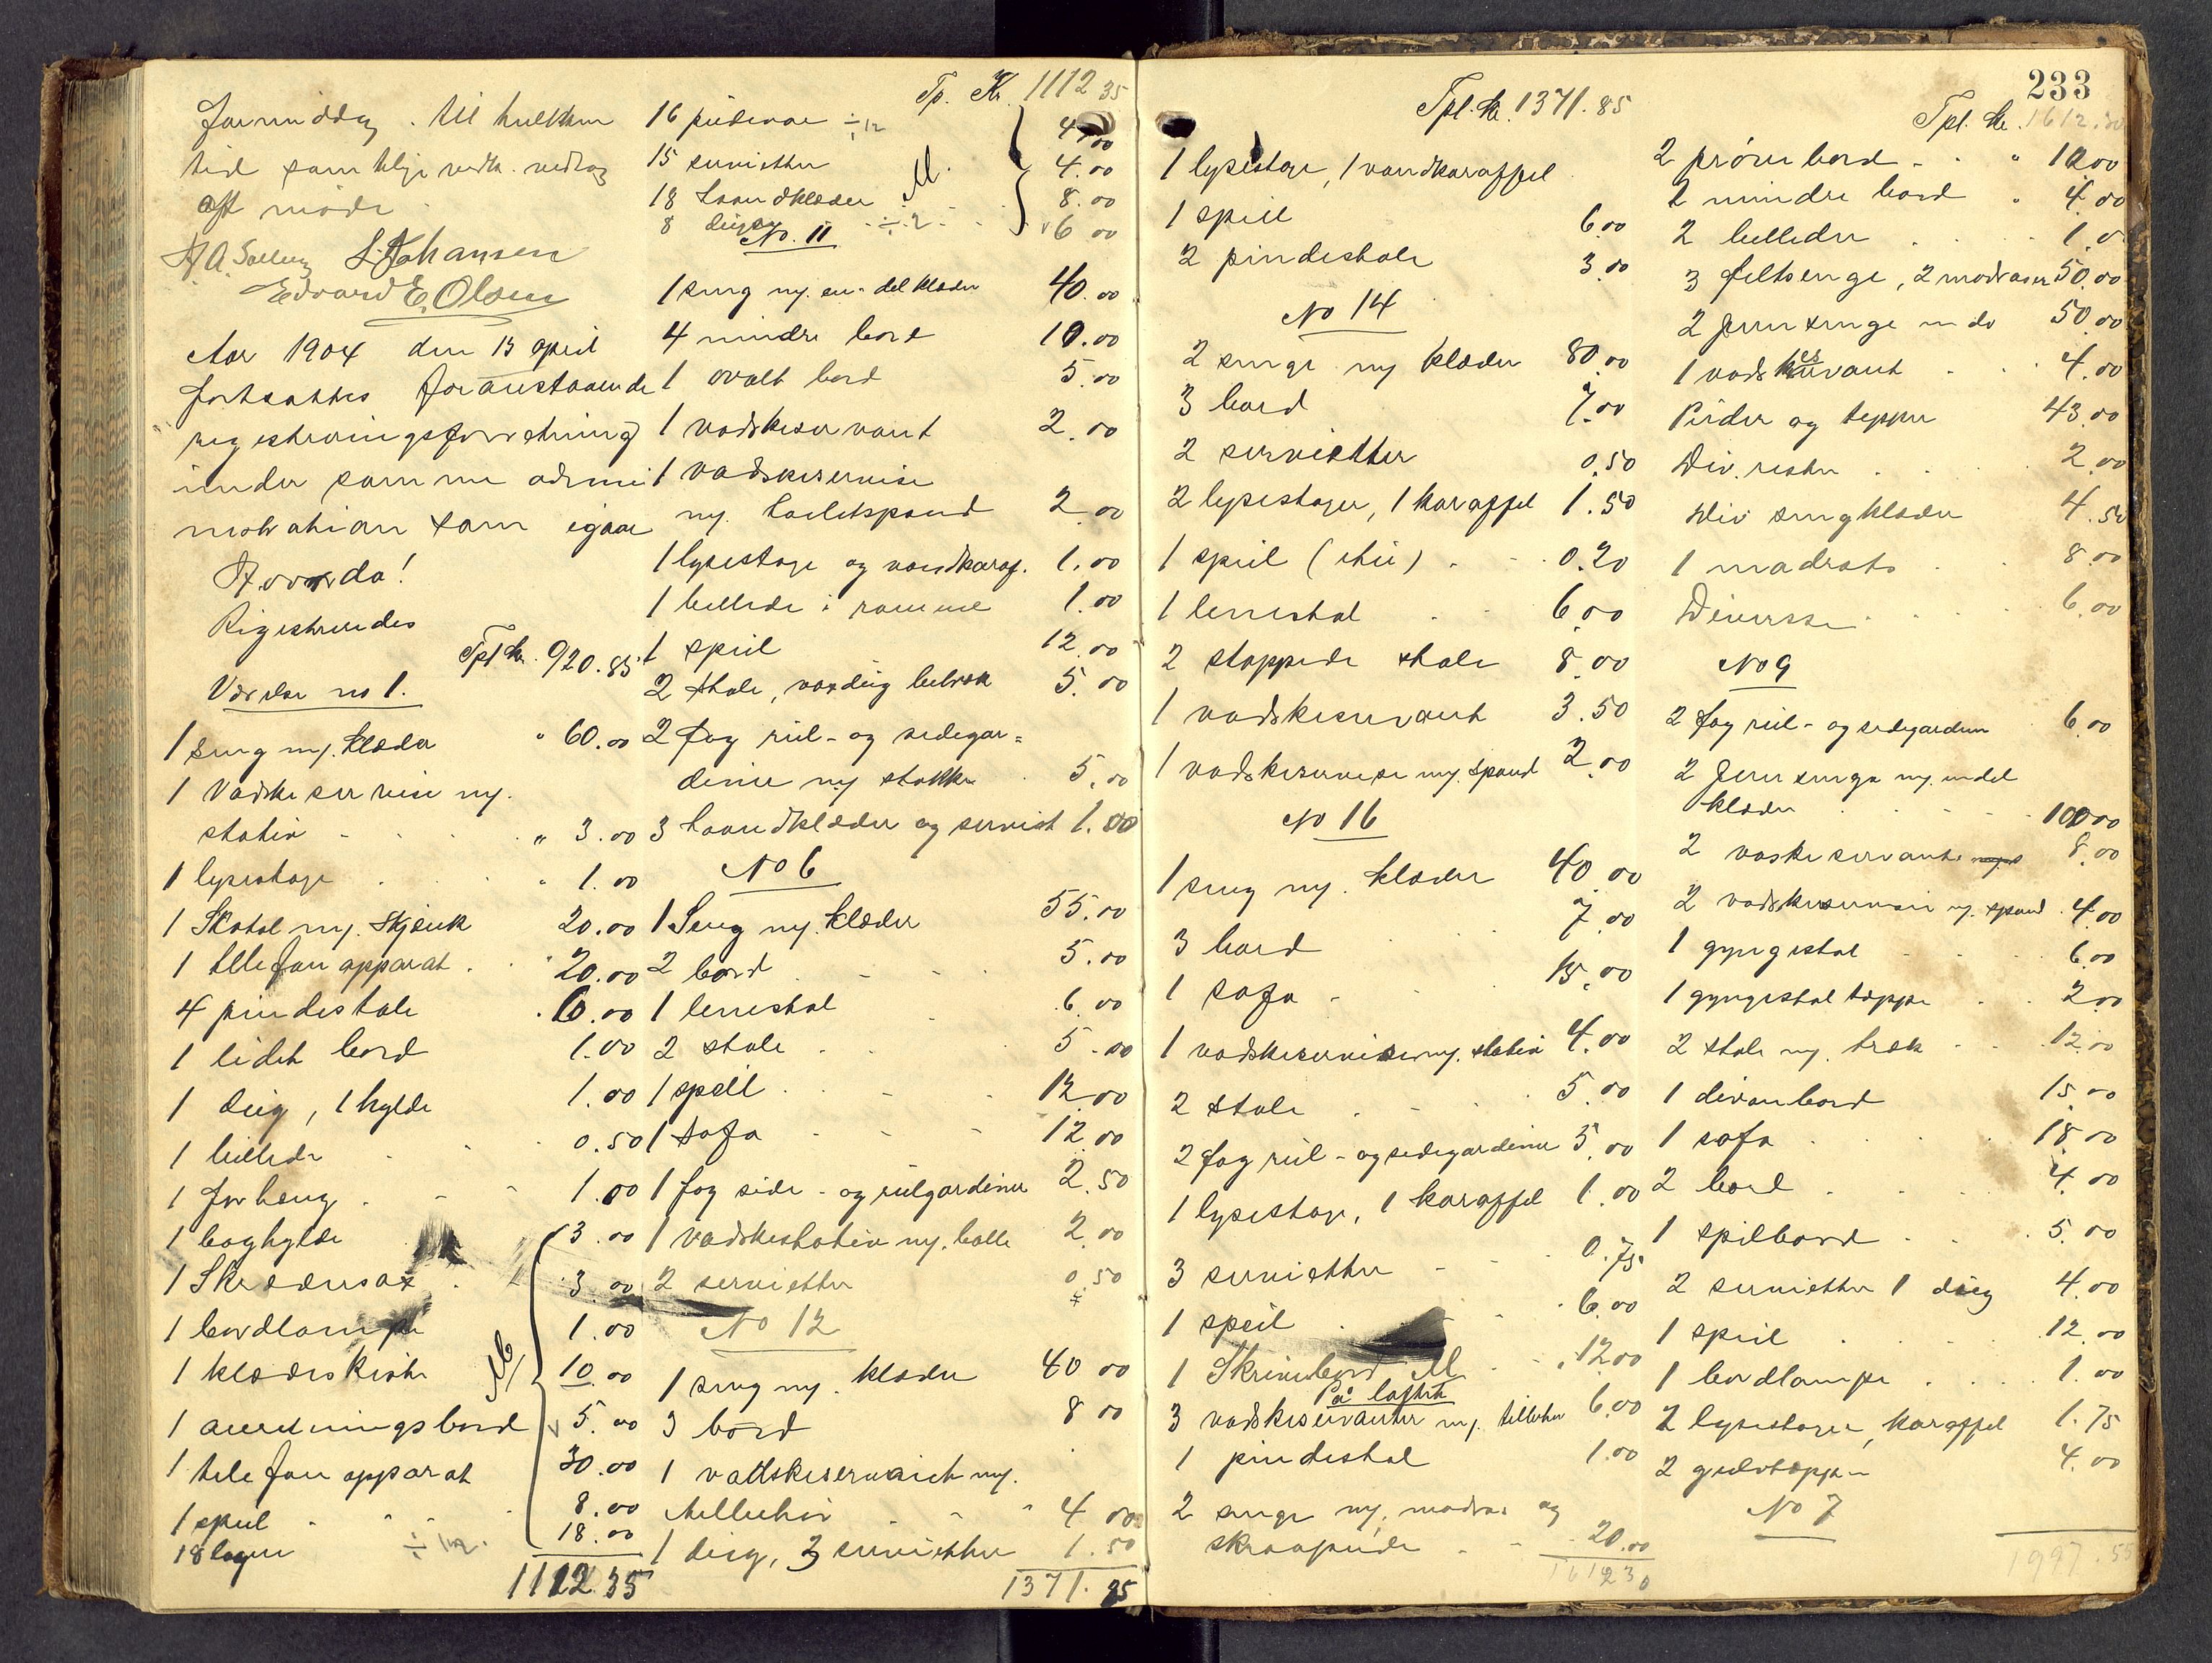 formiddag. til hvilken
tid samtlige vedk. vedtog
at møde.
A. Solberg S. Johansen
Edvard E. Olsen
Aar 1904 den 15 april
fortsattes foranstaaende
registreringsforretning
under samme admi
nistration som igaar
Hvorda!
Registreredes
Tpt kr. 920.85
Værelse no 1.
1 seng m. klæder " 60.00
1 Vadskeservise m.
stativ " 3.00
1 lysestage " 1.00
1 Skatol m. Skjenk 20.00
1 telefonapparat 20.00
4 pindestole 6.00
1 lidet bord 1.00
1 dug, 1 hylde 1.00
1 billede 0.50
1 forheng 1.00
1 boghylde 3.00
1 Skræddersax 3.00
1 bordlampe 1.00
1 klædeskiste 10.00
1 anretningsbord 5.00
1 telefonapparat 30.00
1 speil 8.00
18 lagen ÷ 12. 18.00
1112.35
Tp. Kr. 1112 35
16 pudevar ÷ 12 4.00
15 servietter 4.00
18 haandklæder 8.00
8 duger ÷ 2 6 00
No. 11
1 seng m. en del klæder 40.00
4 mindre bord 10.00
1 ovalt bord 5.00
1 vadskeservant 2.00
1 vadskeservise
m. toiletspand 2.00
1 lysestage og vandkaraf. 1.00
1 billede i ramme 1.00
1 speil 12.00
2 stole, voxdug betræk 5.00
2 fag rul- og sidegar=
diner m stokke 5.00
3 haandklæder og serviet 1.00
No 6
1 Seng m. klæder 55.00
2 bord 5.00
1 lenestol 6.00
2 stole 5.00
1 speil 12.00
1 sofa 12.00
1 fag side- og rulgardiner 2.50
1 vadskestativ m. balle 2.00
2 servietter 0.50
No 12
1 seng m. klæder 40 00
3 bord 8 00
1 vadskeservice m.
tilbehør 4 00
1 dug, 3 servietter 1.50
1371.85
Tpl. kr. 1371.85
1 lysestage, 1 vandkaraffel
1 speil 6.00
2 pindestole 3.00
No 14
2 senge m klæder 80.00
3 bord 7.00
2 servietter 0.50
2 lysestager, 1 karaffel 1.50
1 speil (itu) 0.20
1 lenestol 6.00
2 stoppede stole 8.00
1 vadskeservant 3.50
1 vadskeservise m. spand 2.00
No 16
1 seng m. klæder 40.00
3 bord 7.00
1 sofa 15.00
1 vadskeservise m. stativ 4.00
2 stole 5.00
2 fag rul- og sidegardiner 5.00
1 lysestage, 1 karaffel 1.00
3 servietter 0.75
1 speil 6.00
1 Skrivebord 12.00
På loftet
3 vadskeservanter m. tilbehør 6.00
1 pindestol 1.00
2 senge m. madras og
skraapude 20.00
1612 30
233
Tpl. kr. 1612.30
2 prøvebord " 10.00
2 mindre bord " 4.00
2 billeder 1.0
3 feltsenge, 2 madraser 50.00
2 jernsenge m do 50.00
1 vadskeservant 4.00
Puder og tepper 43.00
Div. rester 2.00
Div sengklæder 4.50
1 madrats 8.00
Diverse 6.00
No 9
2 fag rul- og sidegardiner 6.00
2 jernsenge m. endel
klæder 100.00
2 vaskeservanter 8.00
2 vadskeservise m. spand 4.00
1 gyngestol 6.00
1 gyngestol tæppe 2.00
2 stole m. træk 12.00
1 divanbord 15.00
1 sofa 18.00
2 bord 4.00
1 spilbord 5.00
2 servietter 1 dug 4.00
1 speil 12.00
1 bordlampe 1.00
2 lysestager, karaffel 1.75
2 gulvtæpper 4.00
No 7
1997.55